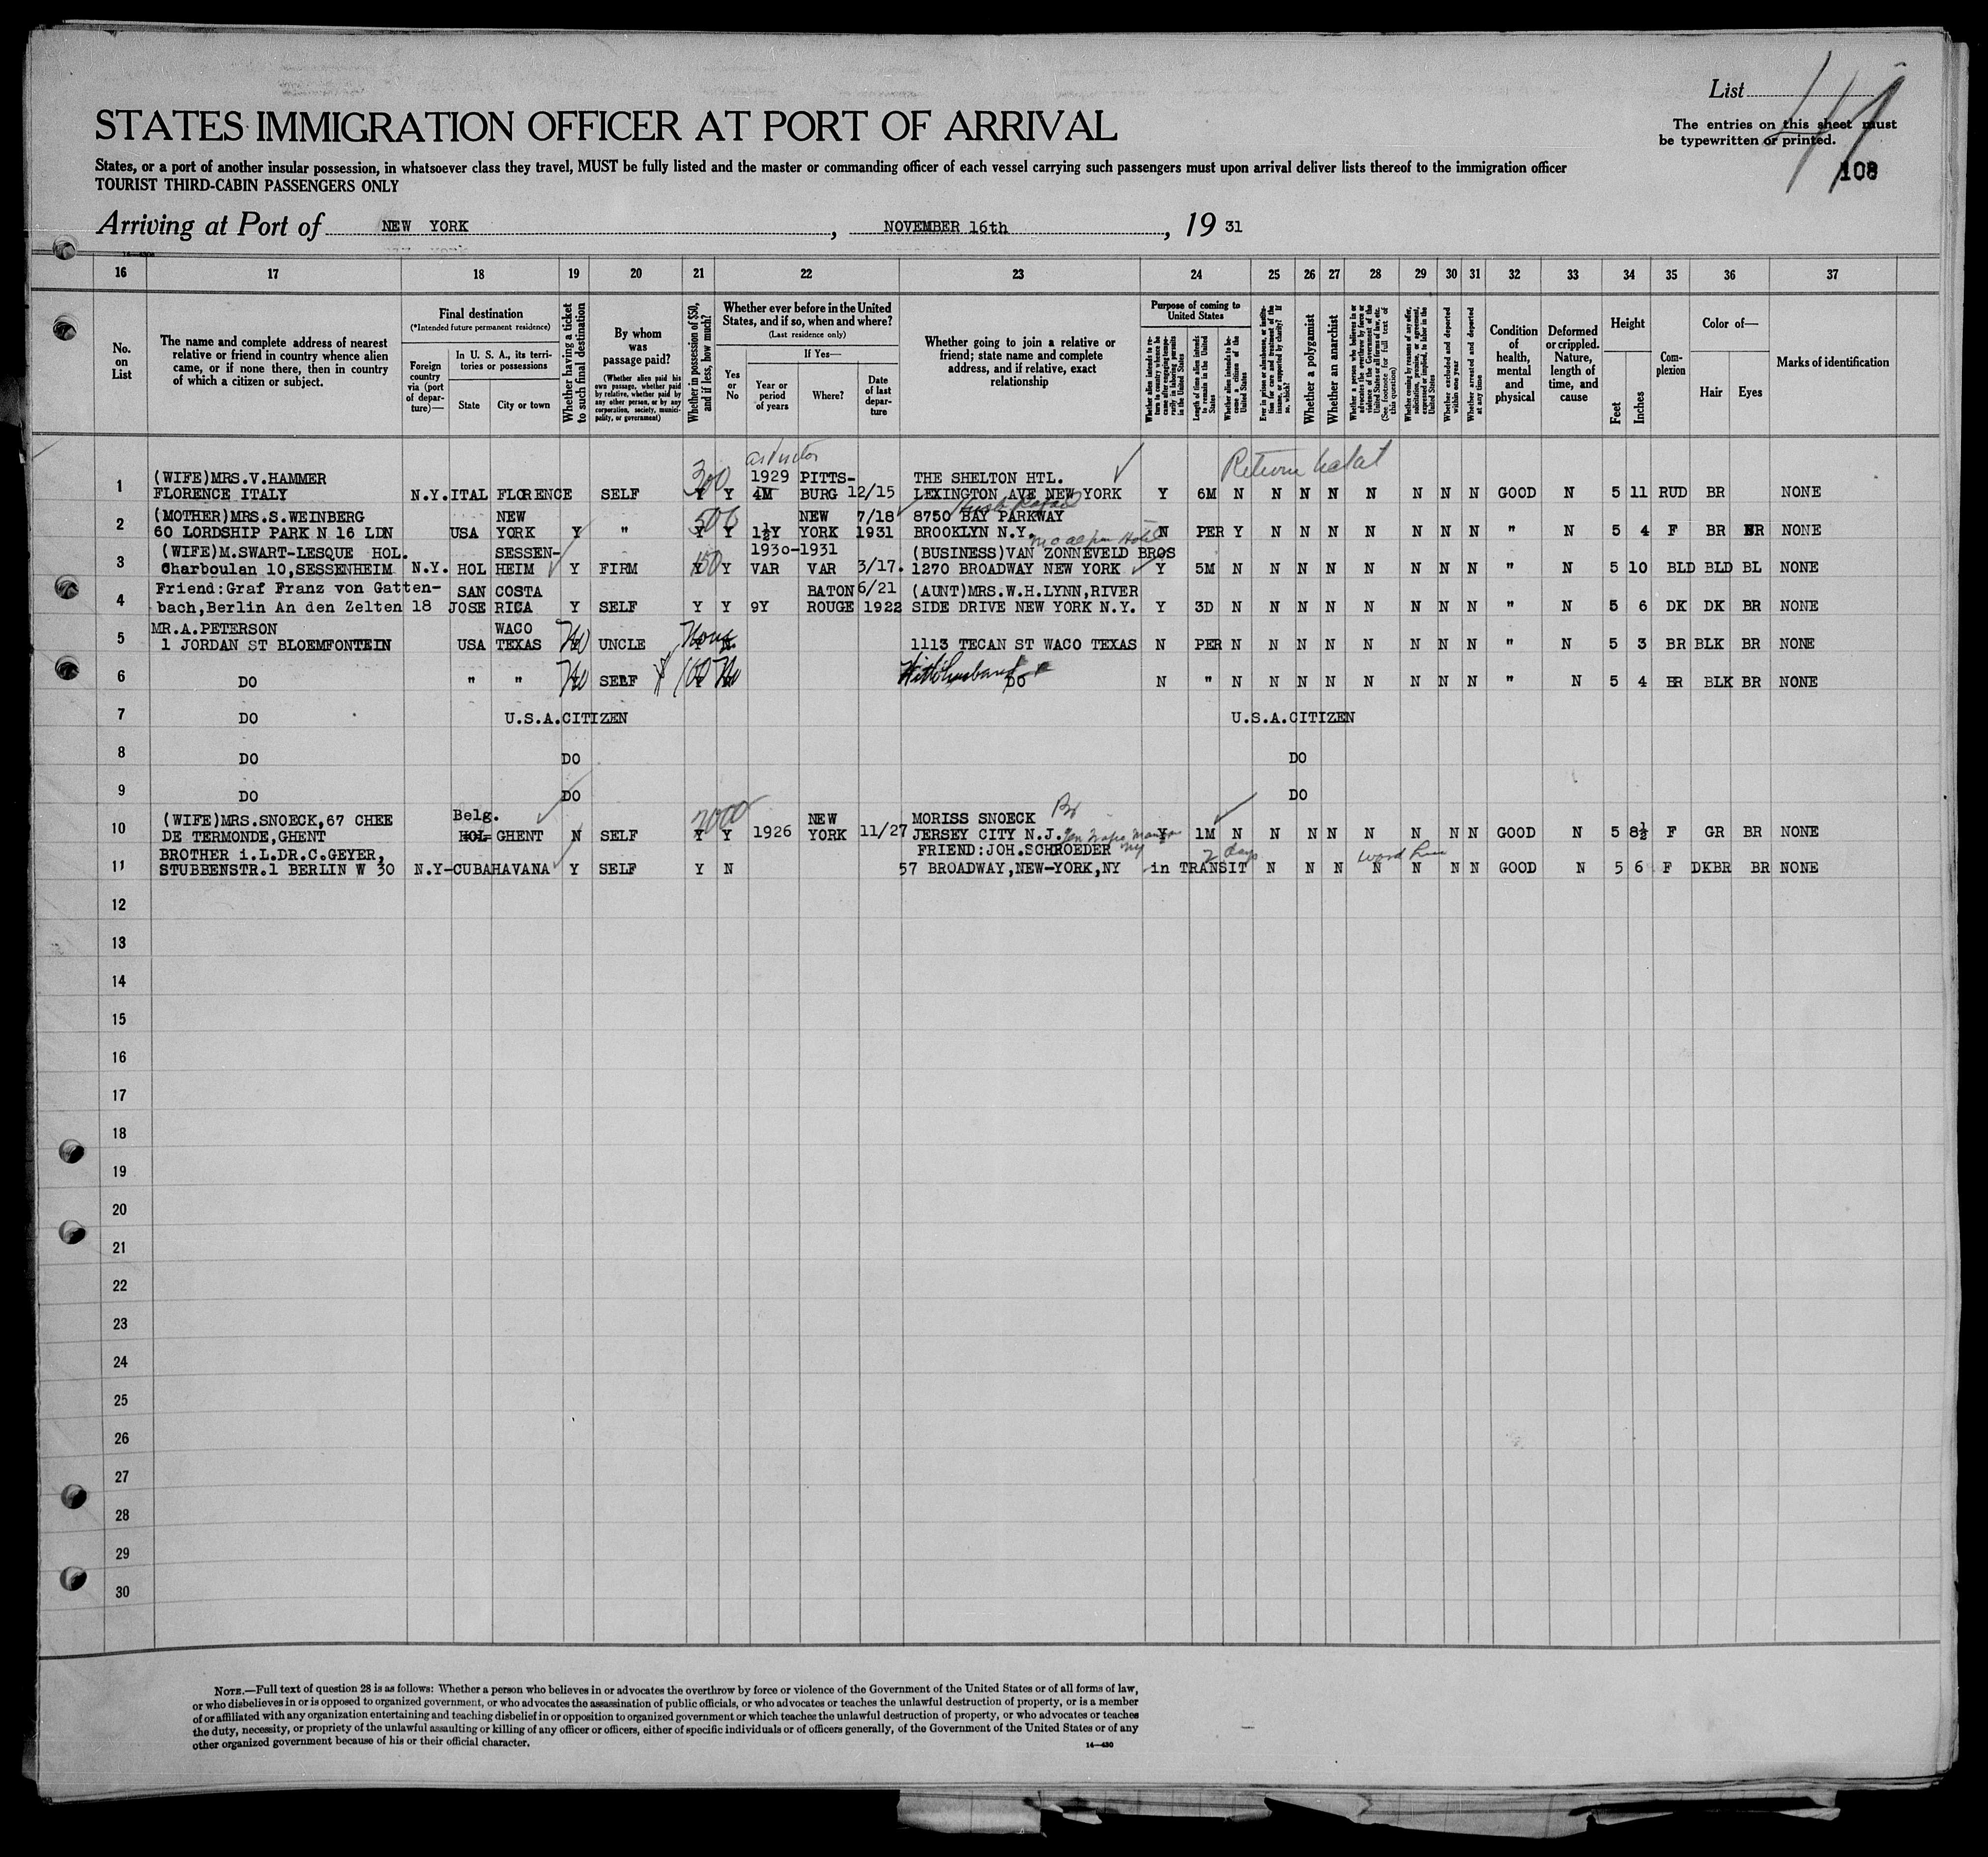 List
The entries on this sheet must
be typewritten or printed.
108
STATES IMMIGRATION OFFICER AT PORT OF ARRIVAL
States, or a port of another insular possession, in whatsoever class they travel, MUST be fully listed and the master or commanding officer of each vessel carrying such passengers must upon arrival deliver lists thereof to the immigration officer
TOURIST THIRD-CABIN PASSENGERS ONLY
Arriving at Port of NEW YORK, NOVEMBER 16th, 19 31
16 17 18 19 20 21 22 23 24 25 26 27 28 29 30 31 32 33 34 35 36 37
No. on List
The name and complete address of nearest
relative or friend in country whence alien
came, or if none there, then in country
of which a citizen or subject.
Final destination
(*Intended future permanent residence)
Foreign country via (port of departure)—
In U. S. A., its territories or possessions
State
City or town
Whether having a ticket to such final destination
By whom was passage paid?
(Whether alien paid his own passage, whether paid by relative, whether paid by any other person, or by any corporation, society, municipality, or government)
Whether in possession of $50, and if less, how much?
Whether ever before in the United
States, and if so, when and where?
(Last residence only)
Yes or No
If Yes—
Year or period of years
Where?
Date of last departure
Whether going to join a relative or
friend; state name and complete
address, and if relative, exact
relationship
Purpose of coming to United States
Whether alien intends to return to country whence he came after engaging temporarily in laboring pursuits in the United States
Length of time alien intends to remain in the United States
Whether alien intends to become a citizen of the United States
Ever in prison or almshouse, or institution for care and treatment of the insane, or supported by charity? If so, which?
Whether a polygamist
Whether an anarchist
Whether a person who believes in or advocates the overthrow by force or violence of the Government of the United States or all forms of law, etc. (See footnote for full text of this question)
Whether coming by reasons of any offer, solicitation, promise, or agreement, expressed or implied, to labor in the United States
Whether excluded and deported within one year
Whether arrested and deported at any time
Condition of health, mental and physical
Deformed or crippled. Nature, length of time, and cause
Height
Feet
Inches
Complexion
Color of—
Hair
Eyes
Marks of identification
300 Return
(WIFE)MRS.V.HAMMER 1929 PITTS- THE SHELTON HTL.
1 FLORENCE ITALY N.Y. ITAL FLORENCE SELF Y Y 4M BURG 12/15 LEXINGTON AVE NEW YORK Y 6M N N N N N N N N GOOD N 5 11 RUD BR NONE
(MOTHER)MRS.S.WEINBERG NEW 500 NEW 7/18 8750 BAY PARKWAY
2 60 LORDSHIP PARK N 16 LDN USA YORK Y " Y Y 1½Y YORK 1931 BROOKLYN N.Y. N PER Y N N N N N N N " N 5 4 F BR BR NONE
(WIFE)M.SWART-LESQUE HOL. SESSEN- 1930-1931 (BUSINESS)VAN ZONNEVELD BROS
3 Charboulan 10,SESSENHEIM N.Y. HOL HEIM Y FIRM Y Y VAR VAR 3/17. 1270 BROADWAY NEW YORK Y 5M N N N N N N N N " N 5 10 BLD BLD BL NONE
Friend:Graf Franz von Gatten- SAN COSTA BATON 6/21 (AUNT)MRS.W.H.LYNN,RIVER
4 bach,Berlin An den Zelten 18 JOSE RICA Y SELF Y Y 9Y ROUGE 1922 SIDE DRIVE NEW YORK N.Y. Y 3D N N N N N N N N " N 5 6 DK DK BR NONE
MR.A.PETERSON WACO
5 1 JORDAN ST BLOEMFONTEIN USA TEXAS No UNCLE None 1113 TECAN ST WACO TEXAS N PER N N N N N N N N " N 5 3 BR BLK BR NONE
6 DO " " No SELF $100 No With husband DO N " N N N N N N N N " N 5 4 BR BLK BR NONE
7 DO U.S.A.CITIZEN U.S.A.CITIZEN
8 DO DO DO
9 DO DO DO
(WIFE)MRS.SNOECK,67 CHEE Belg. NEW MORISS SNOECK
10 DE TERMONDE,GHENT HOL GHENT N SELF Y Y 1926 YORK 11/27 JERSEY CITY N.J. Y 1M N N N N N N N N GOOD N 5 8½ F GR BR NONE
BROTHER i.L.DR.C.GEYER, FRIEND:JOH.SCHROEDER 2 days
11 STUBBENSTR.1 BERLIN W 30 N.Y-CUBA HAVANA Y SELF Y N 57 BROADWAY,NEW-YORK,NY in TRANSIT N N N N N N N GOOD N 5 6 F DKBR BR NONE
12
13
14
15
16
17
18
19
20
21
22
23
24
25
26
27
28
29
30
NOTE.—Full text of question 28 is as follows: Whether a person who believes in or advocates the overthrow by force or violence of the Government of the United States or of all forms of law,
or who disbelieves in or is opposed to organized government, or who advocates the assassination of public officials, or who advocates or teaches the unlawful destruction of property, or is a member
of or affiliated with any organization entertaining and teaching disbelief in or opposition to organized government or which teaches the unlawful destruction of property, or who advocates or teaches
the duty, necessity, or propriety of the unlawful assaulting or killing of any officer or officers, either of specific individuals or of officers generally, of the Government of the United States or of any
other organized government because of his or their official character.
14—430